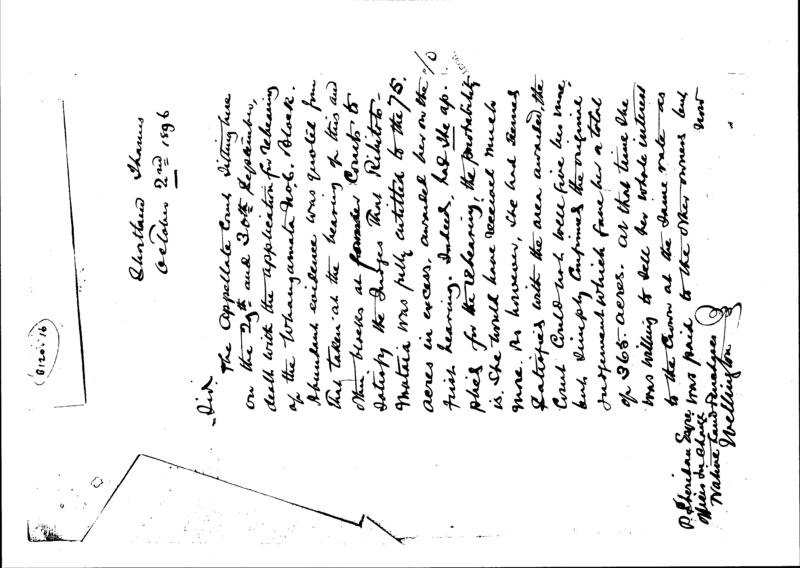 Shortland Thames
October 2nd 1896
Sir
The Appellate Court sitting here
on the 29th and 30th September,
dealt with the application for rehearing
of the Whangamata No 6. Block.
Abundant evidence was quoted from
that taken at the hearing of this and
other blocks at former Courts to
satisfy the Judges that Ripitotu-
Mataia was fully entitled to the 75.
acres in excess. awarded her on the
first hearing. Indeed, had she ap-
plied for the rehearing, the probability
is. She would have received much
more. As however, she had seemed
satisfied with the area awarded, the
Court could not well give her more,
but simply confirmed the original
judgement which gave her a total
of 365 acres. At that time she
was willing to sell her whole interest
to the Crown at the same rate as
was paid to the other owners but
now
P. Sheridan Esqre
Officer in Charge
Native Land Purchases
Wellington